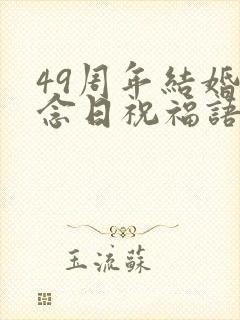 49周年結婚
念日祝福語
玉流蘇